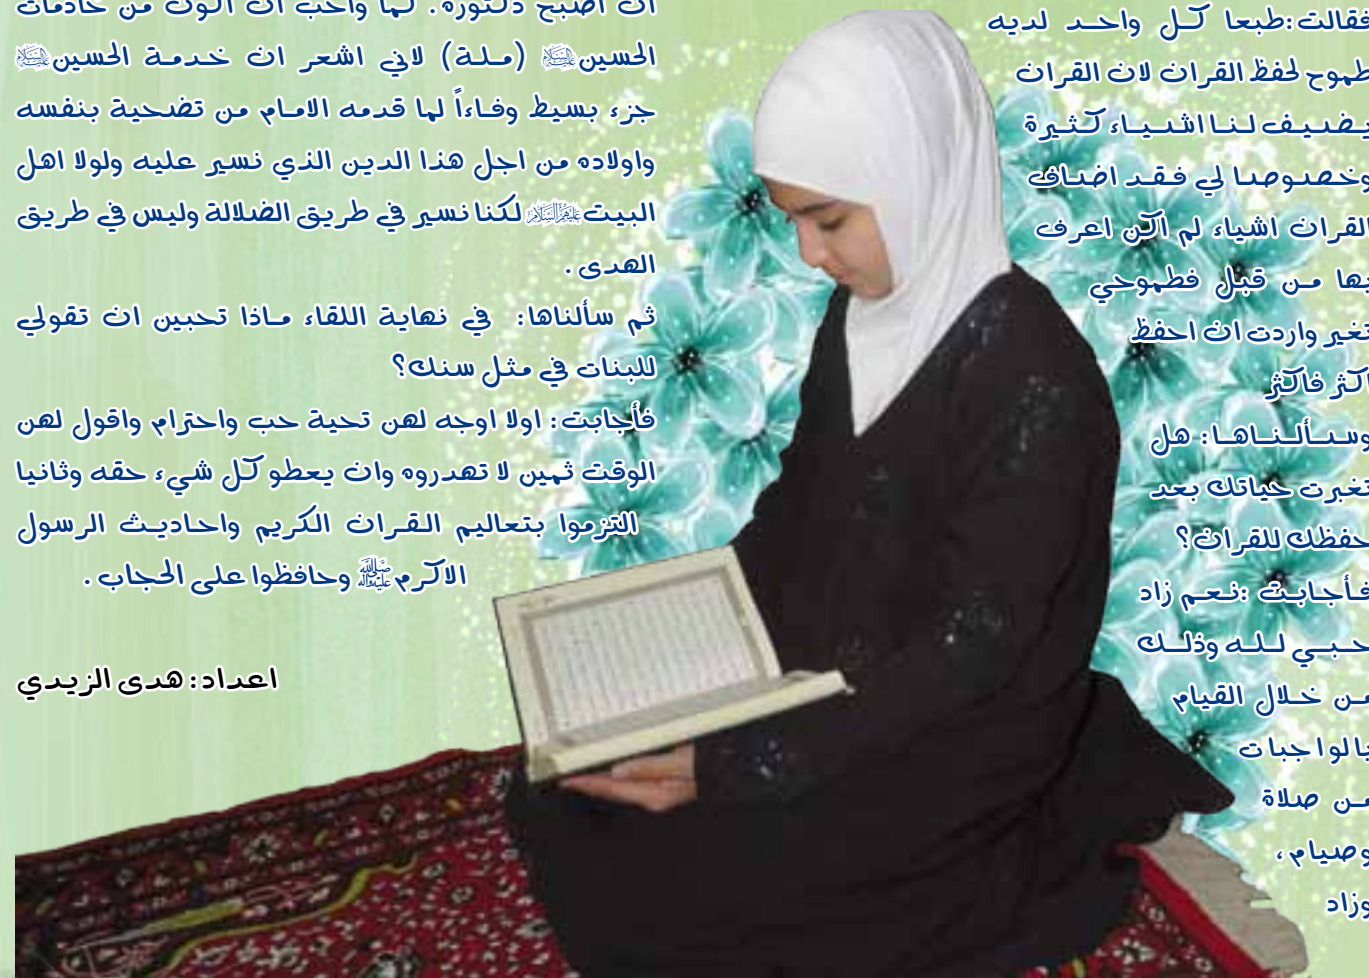 فقالت:طبعا كل واحد لديه
طموح لحفظ القران لان القران
يضيف لنا اشياء كثيرة
وخصوصا لي فقد اضاف
القران اشياء لم اكن اعرف
بها من قبل فطموحي
تغير واردت ان احفظ
اكثر فاكثر
وسألناها: هل
تغيرت حياتك بعد
حفظك للقران؟
فأجابت :نعم زاد
حبي لله وذلك
من خلال القيام
بالواجبات
من صلاة
وصيام،
وزاد
ان اصبح دكتورة. كما واحب ان اكون من خادمات
الحسين عليه السلام (ملة) لاني اشعر ان خدمة الحسين عليه السلام
جزء بسيط وفاءاً لما قدمه الامام من تضحية بنفسه
واولاده من اجل هذا الدين الذي نسير عليه ولولا اهل
البيت عليهم السلام لكنا نسير في طريق الضلالة وليس في طريق
الهدى.
ثم سألناها: في نهاية اللقاء ماذا تحبين ان تقولي
للبنات في مثل سنك؟
فأجابت: اولا اوجه لهن تحية حب واحترام واقول لهن
الوقت ثمين لا تهدروه وان يعطو كل شيء حقه وثانيا
التزموا بتعاليم القران الكريم واحاديث الرسول
الاكرم ﷺ وحافظوا على الحجاب.
اعداد: هدى الزيدي